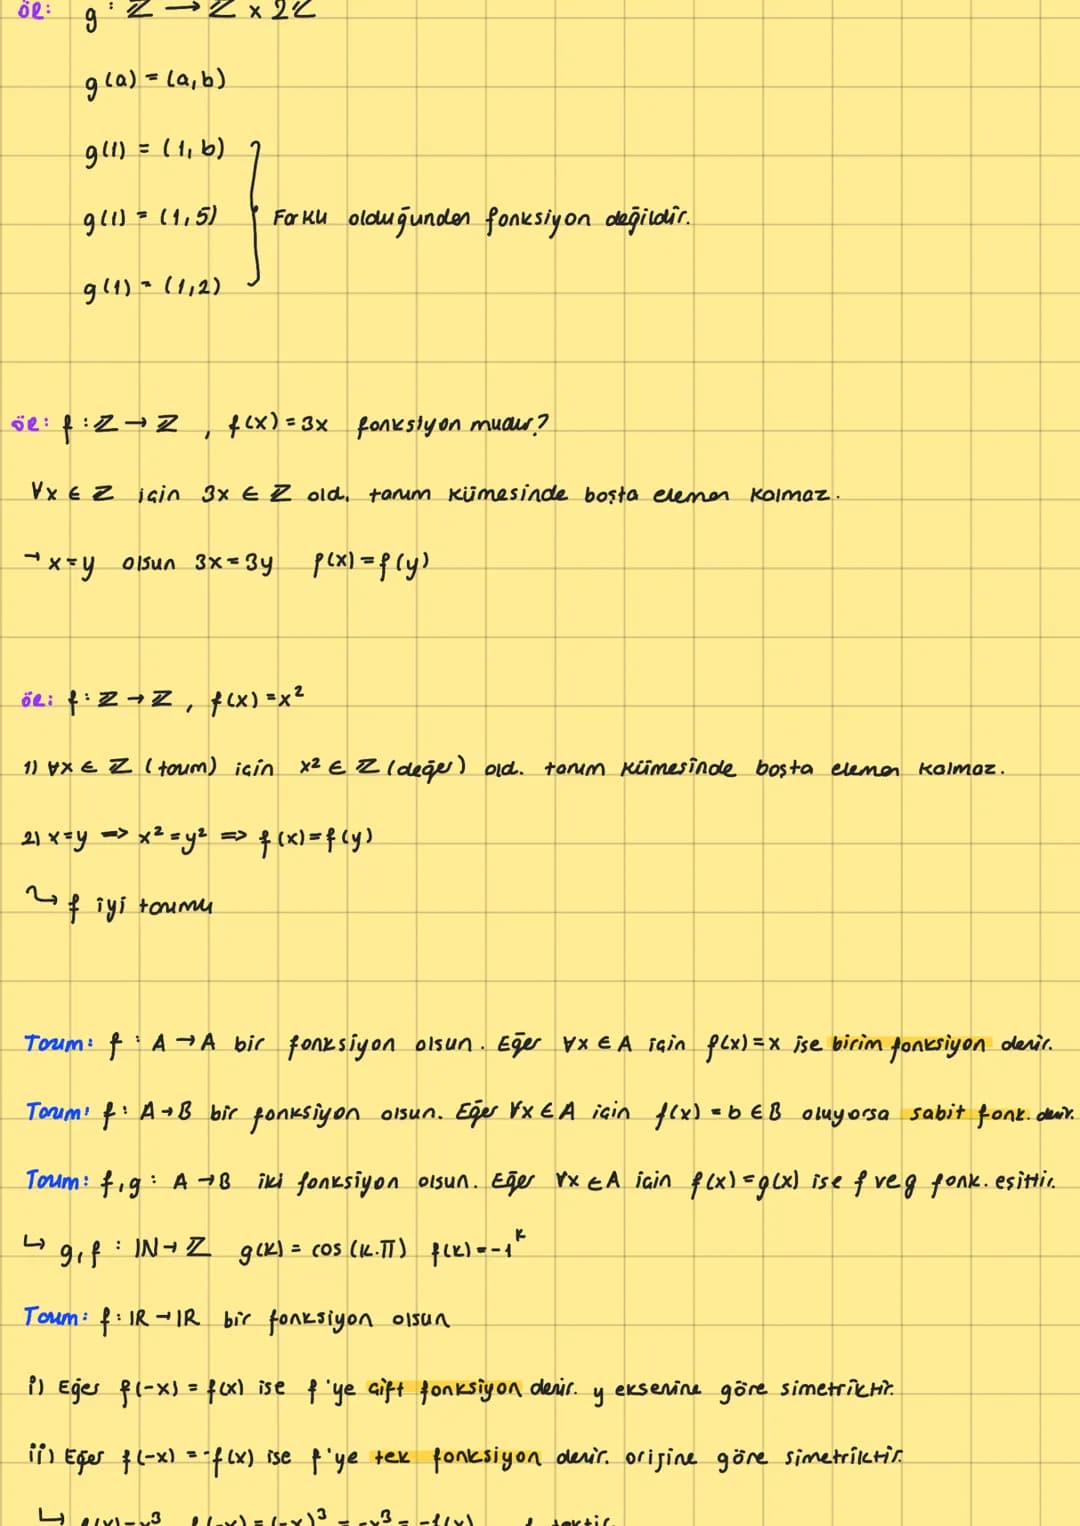 ör: g : ℤ → ℤ x 2ℤ
g(a) = (a,b)
g(1) = (1,b)
g(1) = (1,5) } Farklı olduğundan fonksiyon değildir.
g(1) = (1,2)
ör: f : ℤ → ℤ , f(x) = 3x fonksiyon mudur?
∀x ∈ ℤ için 3x ∈ ℤ old. tanım kümesinde boşta eleman kalmaz.
→ x=y olsun 3x=3y f(x)=f(y)
ör: f : ℤ → ℤ , f(x) = x²
1) ∀x ∈ ℤ (tanım) için x² ∈ ℤ (değer) old. tanım kümesinde boşta eleman kalmaz.
2) x=y => x²=y² => f(x)=f(y)
↪ f iyi tanımlı
Tanım: f : A → A bir fonksiyon olsun. Eğer ∀x ∈ A için f(x)=x ise birim fonksiyon denir.
Tanım: f : A → B bir fonksiyon olsun. Eğer ∀x ∈ A için f(x) = b ∈ B oluyorsa sabit fonk. denir.
Tanım: f,g : A → B iki fonksiyon olsun. Eğer ∀x ∈ A için f(x)=g(x) ise f ve g fonk. eşittir.
↳ g,f : ℕ → ℤ g(k) = cos (k.π) f(k) = -1ᵏ
Tanım: f : ℝ → ℝ bir fonksiyon olsun
i) Eğer f(-x) = f(x) ise f 'ye çift fonksiyon denir. y eksenine göre simetriktir.
ii) Eğer f(-x) = -f(x) ise f'ye tek fonksiyon denir. orijine göre simetriktir.
↳ f(x)=x³ f(-x) = (-x)³ = -x³ = -f(x) f tektir.